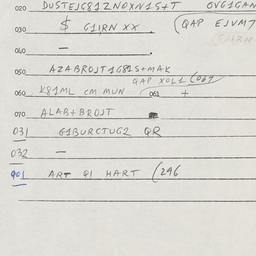 020 DUSTEJC81ZNOXN15+T OVG1GAN
030 $ G1IRN XX . (QAP EJVMT
040 — .
050 AZABROJT1G81S+MAK
QAP XOL1 (069
060 K81ML CM MUN (061 +
070 ALAB+BROJT
031 G1BURCTUG2 QR
032 —
901 ART Q1 HART (296